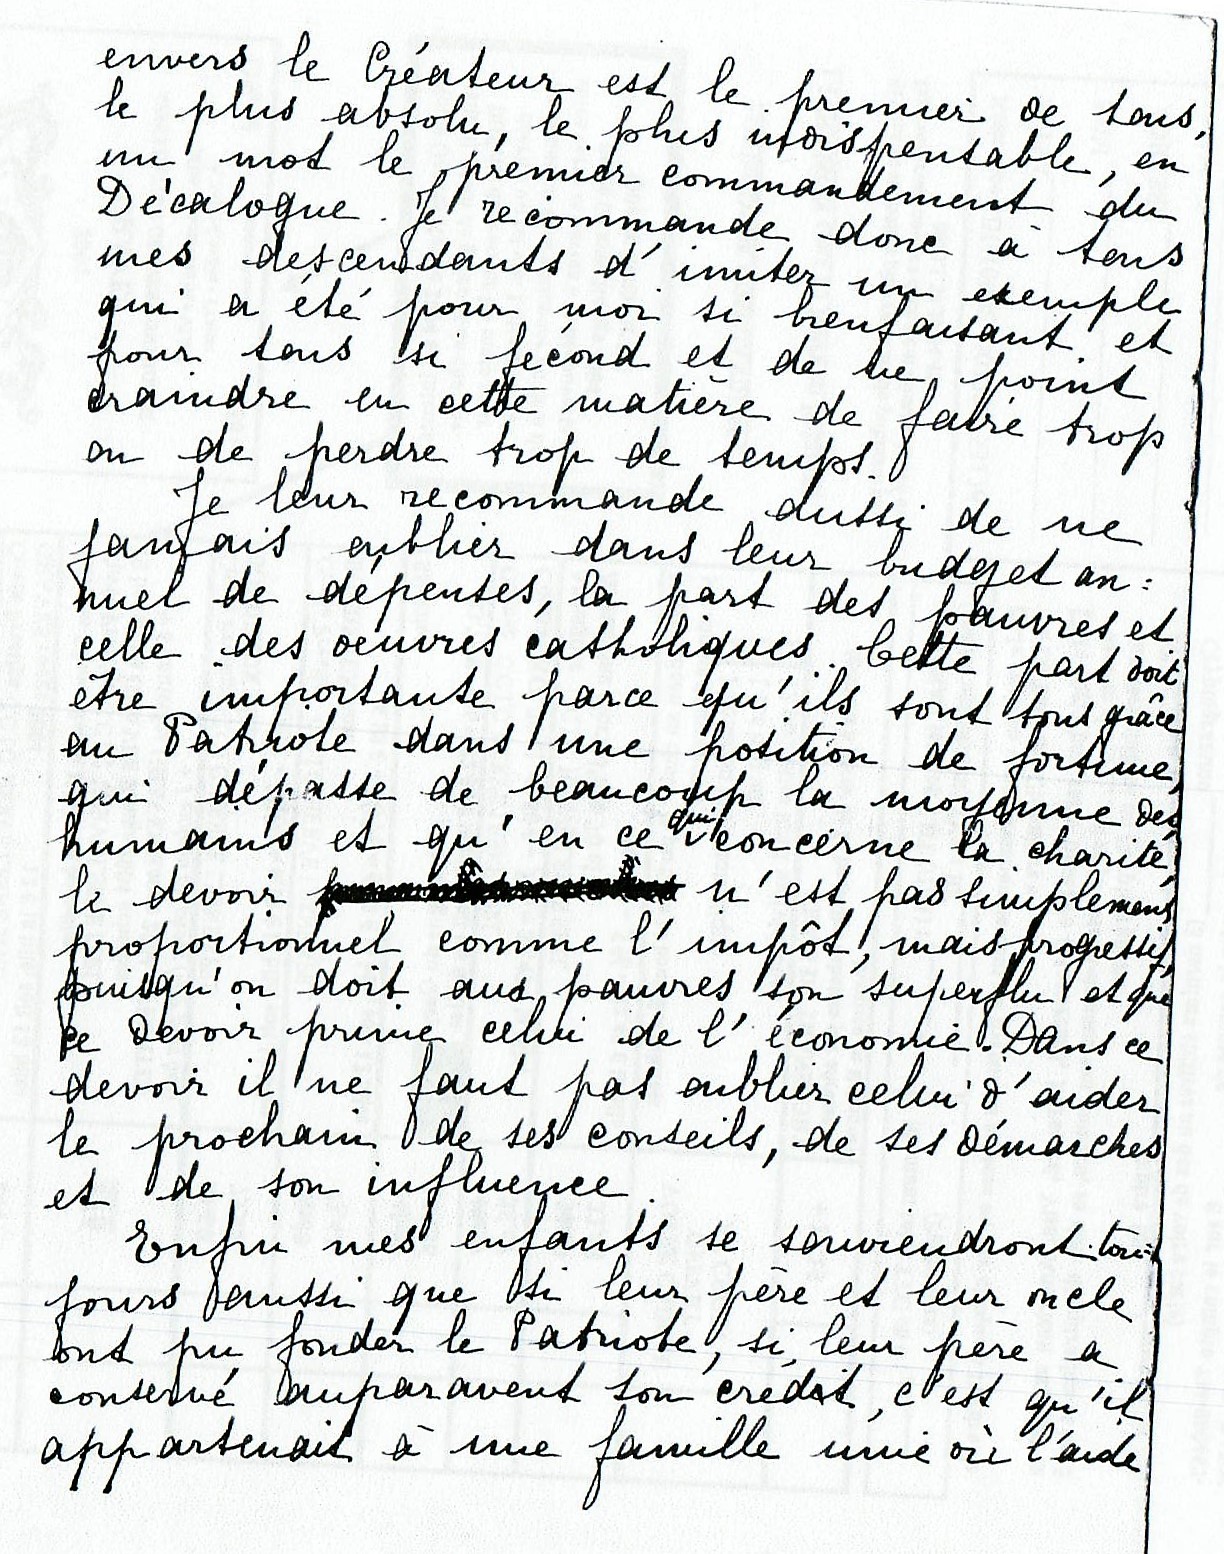 envers le Créateur est le premier de tous,
le plus absolu, le plus indispensable, en
un mot le premier commandement du
Décalogue. Je recommande donc à tous
mes descendants d'imiter un exemple
qui a été pour moi si bienfaisant et
pour tous si fécond et de ne point
craindre en cette matière de faire trop
ou de perdre trop de temps.
Je leur recommande aussi de ne
jamais oublier dans leur budget an=
nuel de dépenses, la part des pauvres et
celle des oeuvres catholiques. Cette part doit
être importante parce qu'ils sont tous grâce
au Patriote dans une position de fortune,
qui dépasse de beaucoup la moyenne des
humains et qu'en ce qui concerne la charité,
le devoir n'est pas simplement
proportionnel comme l'impôt, mais progressif,
puisqu'on doit aux pauvres son superflu et que
ce devoir prime celui de l'économie. Dans ce
devoir il ne faut pas oublier celui d'aider
le prochain de ses conseils, de ses démarches
et de son influence.
Enfin mes enfants se souviendront tou=
jours aussi que si leur père et leur oncle
ont pu fonder le Patriote, si leur père a
conservé auparavent son crédit, c'est qu'il
appartenait à une famille unie où l'aide